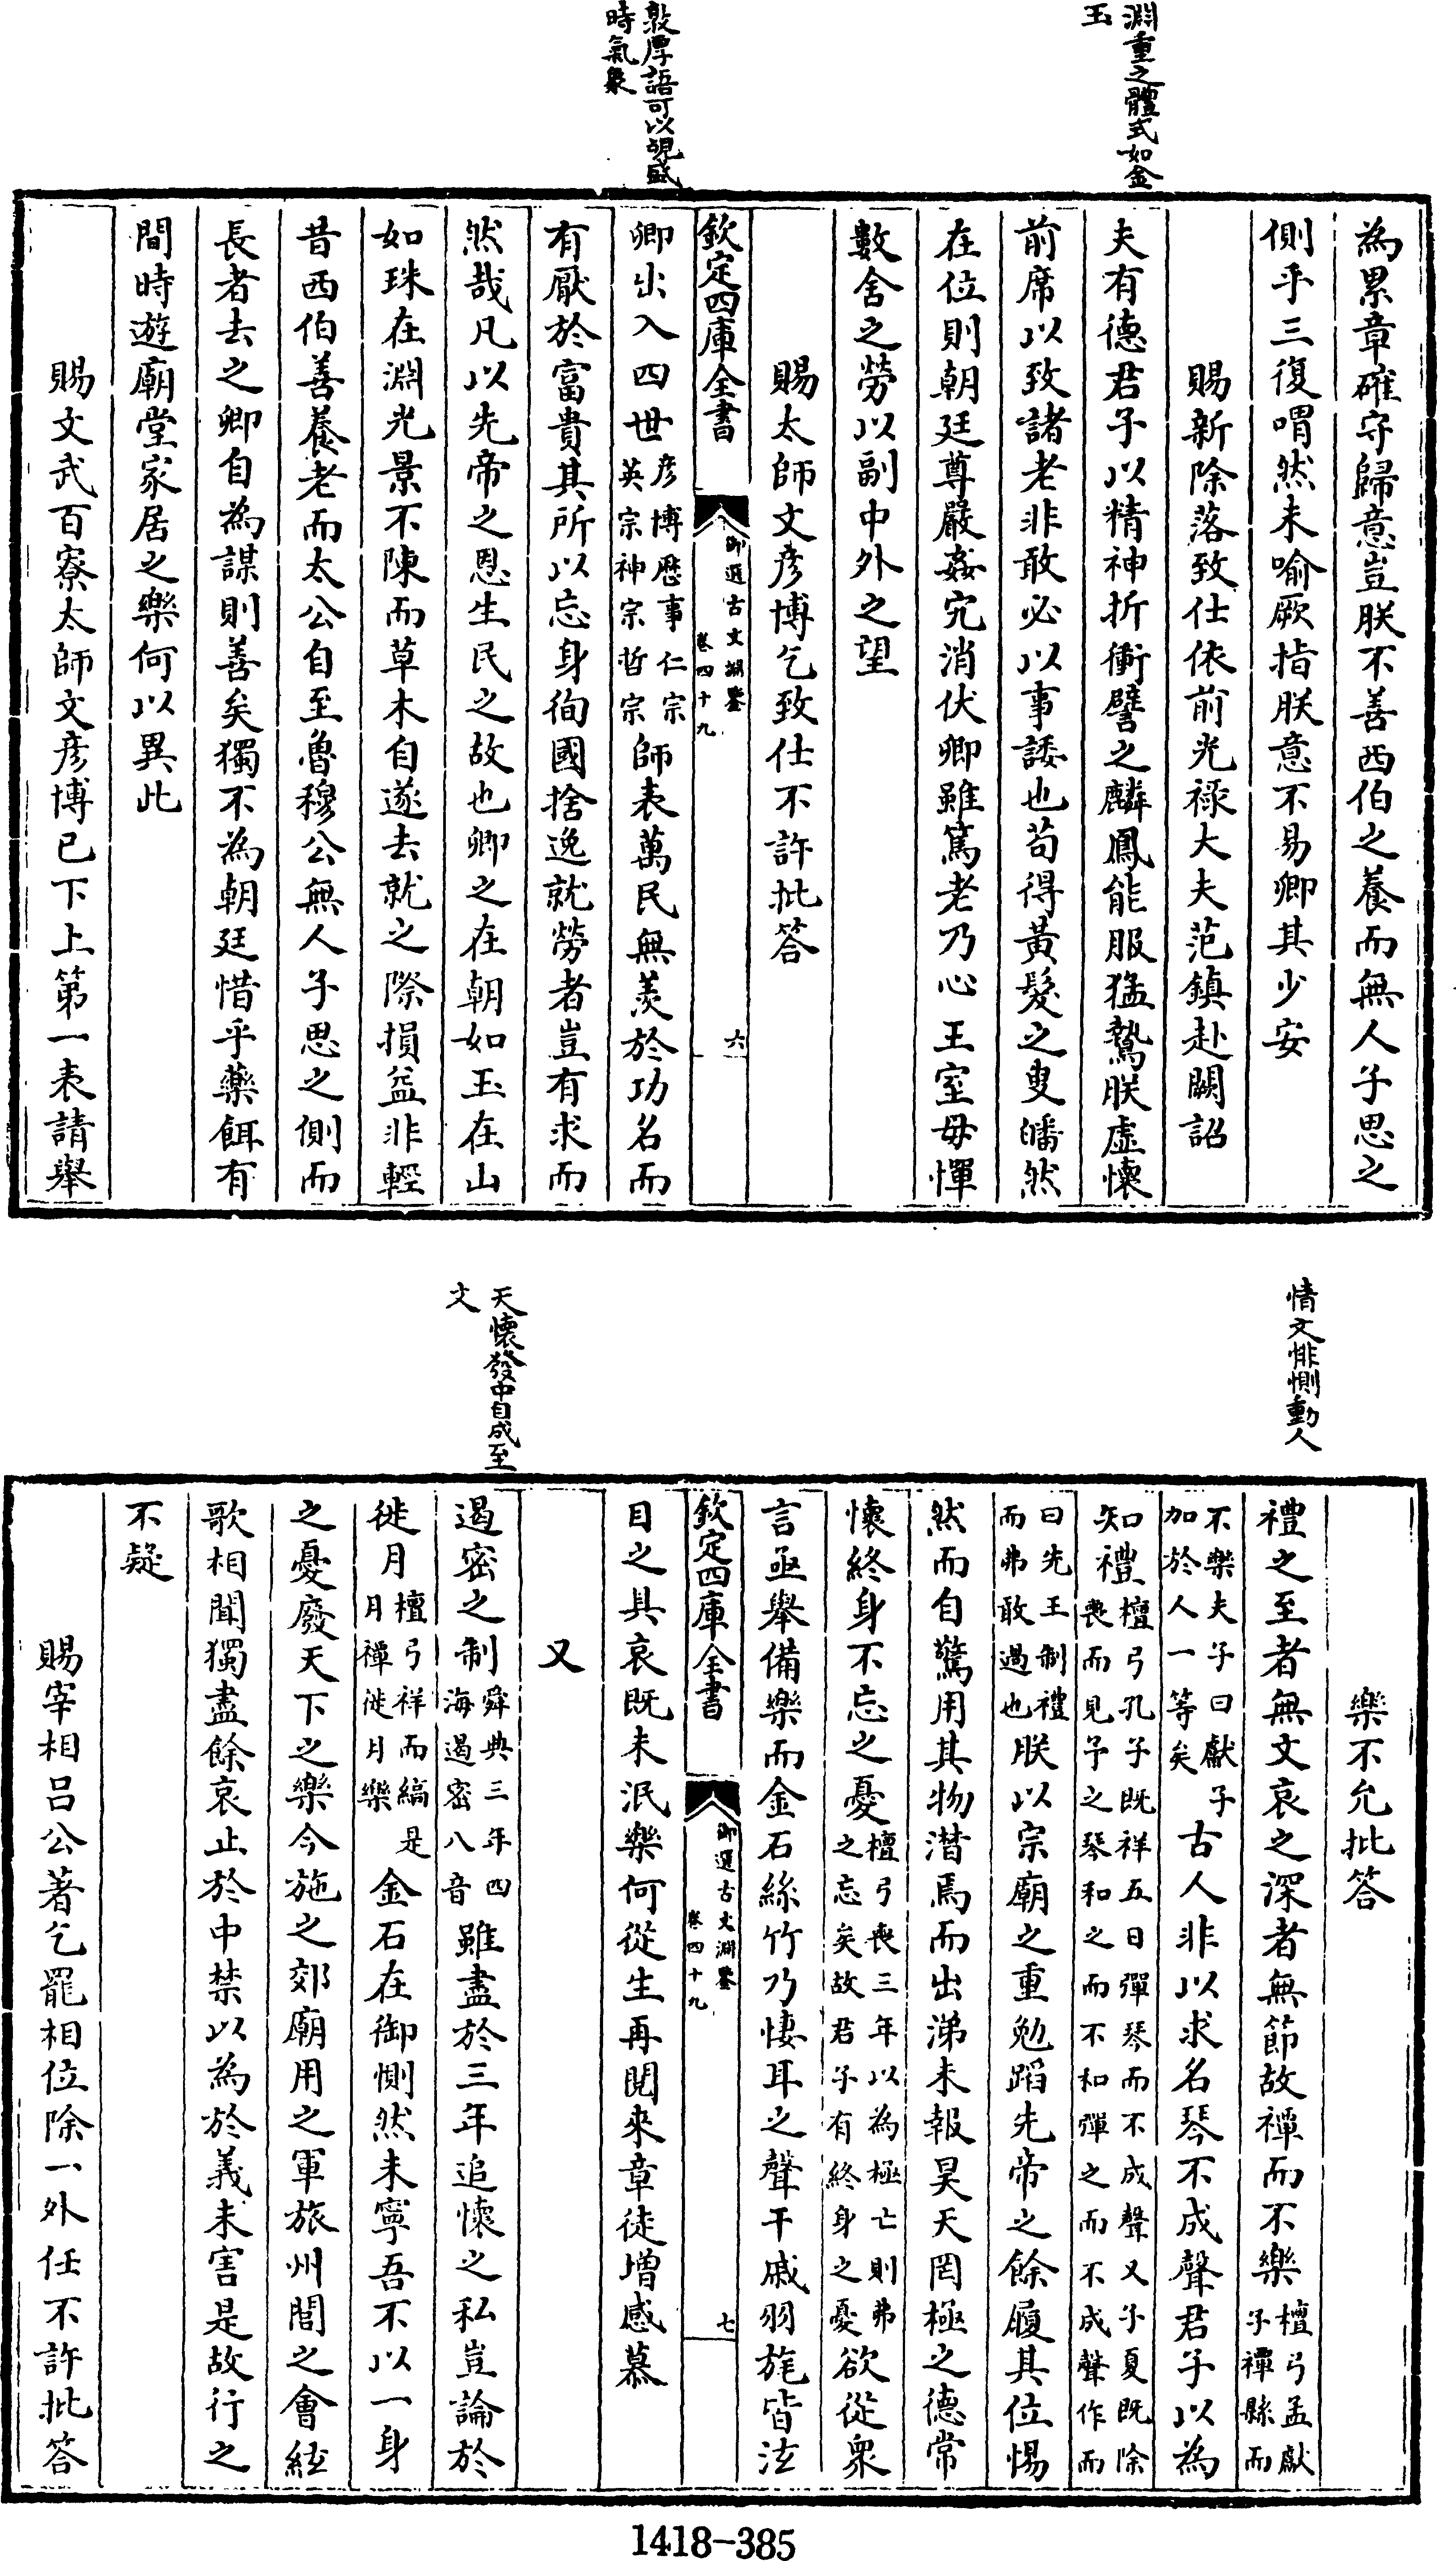 淵重之體式如金
玉
敦厚語可以覘盛
時氣象
為累章確守歸意豈朕不善西伯之養而無人子思之
側乎三復喟然未喻厥指朕意不易卿其少安
賜新除落致仕依前光祿大夫范鎮赴闕詔
夫有德君子以精神折衝譬之麟鳳能服猛鷙朕虛懷
前席以致諸老非敢必以事諉也苟得黃髮之叟皤然
在位則朝廷尊嚴姦宄消伏卿雖篤老乃心王室毋憚
數舍之勞以副中外之望
賜太師文彥博乞致仕不許批答
欽定四庫全書
御選古文淵鑒
卷四十九
六
卿出入四世彥博歷事仁宗英宗神宗哲宗師表萬民無羨於功名而
有厭於富貴其所以忘身徇國捨逸就勞者豈有求而
然哉凡以先帝之恩生民之故也卿之在朝如玉在山
如珠在淵光景不陳而草木自遂去就之際損益非輕
昔西伯善養老而太公自至魯穆公無人子思之側而
長者去之卿自為謀則善矣獨不為朝廷惜乎藥餌有
間時遊廟堂家居之樂何以異此
賜文武百寮太師文彥博已下上第一表請舉
情文悱惻動人
天懷發中自成至
文
樂不允批答
禮之至者無文哀之深者無節故禫而不樂檀弓孟獻子禫縣而
不樂夫子曰獻子加於人一等矣古人非以求名琴不成聲君子以為
知禮檀弓孔子既祥五日彈琴而不成聲又子夏既除喪而見予之琴和之而不和彈之而不成聲作而
曰先王制禮而弗敢過也朕以宗廟之重勉蹈先帝之餘履其位惕
然而自驚用其物潸焉而出涕未報昊天罔極之德常
懷終身不忘之憂檀弓喪三年以為極亡則弗之忘矣故君子有終身之憂欲從眾
言亟舉備樂而金石絲竹乃悽耳之聲干戚羽旄皆泫
欽定四庫全書
御選古文淵鑒
卷四十九
七
目之具哀既未泯樂何從生再閱來章徒增感慕
又
遏密之制舜典三年四海遏密八音雖盡於三年追懷之私豈論於
徙月檀弓祥而縞是月禫徙月樂金石在御惻然未寧吾不以一身
之憂廢天下之樂今施之郊廟用之軍旅州閭之會絃
歌相聞獨盡餘哀止於中禁以為於義未害是故行之
不疑
賜宰相呂公著乞罷相位除一外任不許批答
1418-385